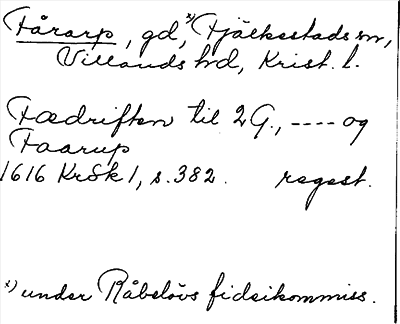 Fårarp, gd,ˣ⁾ Fjälkestads sn,
Villands hd, Krist. l.
Fædriften til 2 G., ---- og
Faarup
1616 KrSk 1, s. 382. regest.
x) under Råbelövs fideikommiss.